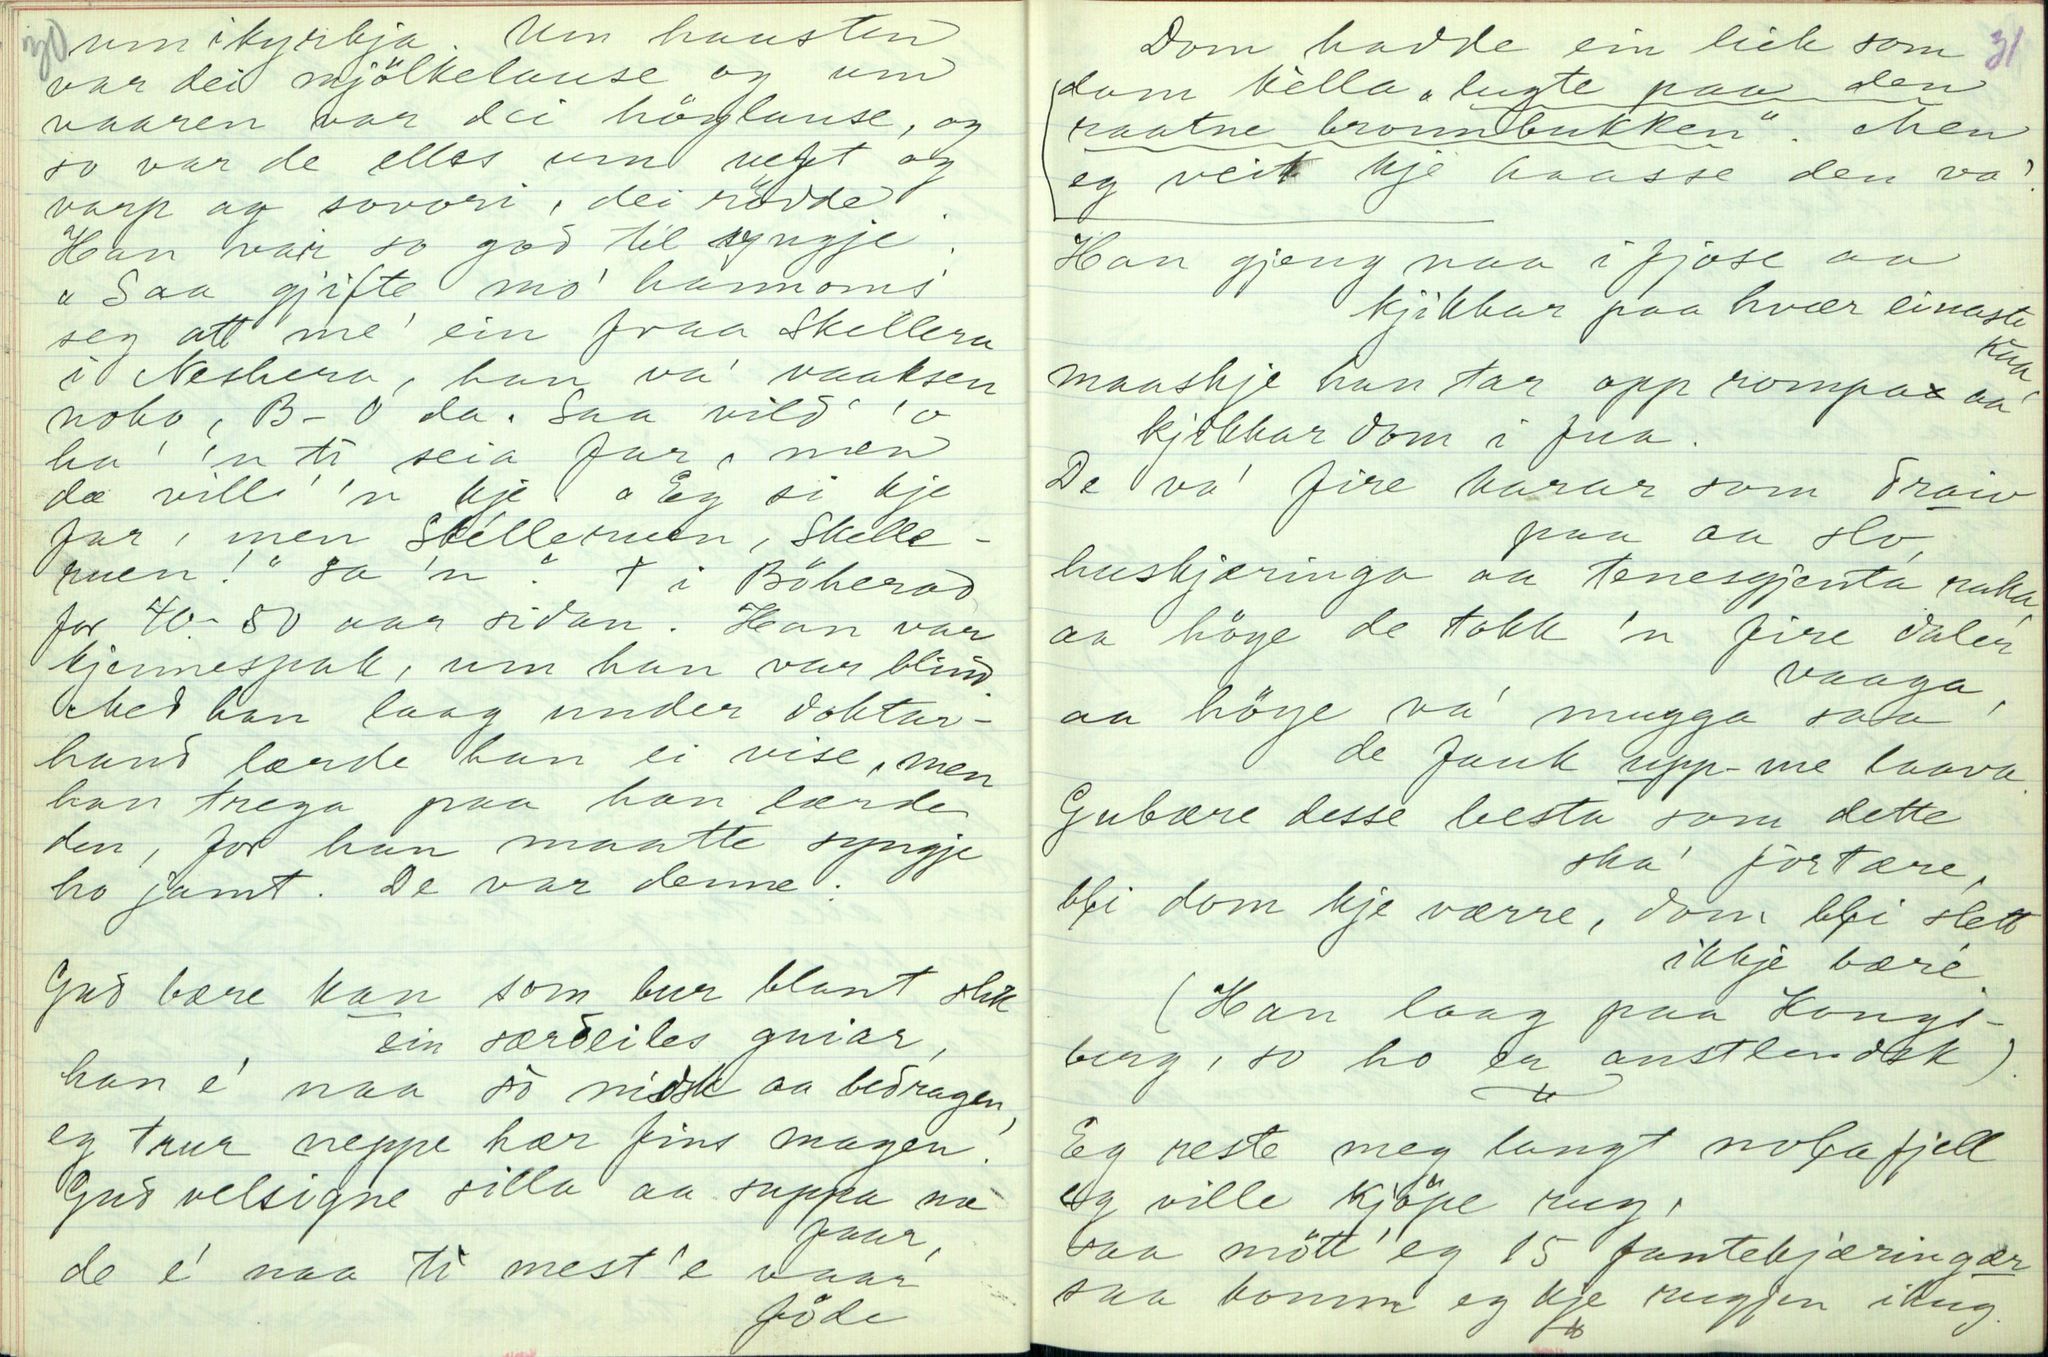 30
um ikyrkja. Um hausten
var dei mjölkelause og um
vaaren var dei höylause, og
so var de elles um veft og
varp og sovori, dei rödde.
Han var so god til syngje.
"Saa gjifte mo' hannoms
seg att me' ein fraa Skillera
i Neshera, han va' vaaksen
noko, B-Ö da. Saa vild' 'o
ha' 'n ti seia far, men
dæ ville' 'n kje. "Eg si kje
far, men Skilleruen, Skille-
ruen!" sa 'n". † i Böherad
for 40-50 aar sidan. Han var
kjennespak, um han var blind.
Med han laag under doktar-
hand lærde han ei vise, men
han trega paa han lærde
den, for han maatte syngje
ho jamt. De var denne:
Gud bære kan som bur blant slik
ein særdeiles gniar,
han e' naa so nidsk aa bedragen,
eg trur neppe hær fins magen.
Gud velsigne silla aa suppa me
faar,
de e' naa ti mest'e vaar
föde
31
Dom hadde ein leik som
dom kella "lugte paa den
raatne bronnbukken". Men
eg veit kje haasse den va'.
Han gjeng naa i fjose aa
kjikkar paa hvær einaste
kua
maaskje han tar opp rompa aa'
kjikkar dom i fua.
De va' fire karar som draiv
paa aa slo,
huskjæringa aa tenesgjenta raka
aa höye de tokk 'n fire daler
vaaga,
aa höye va' mugga saa'
de fauk upp-me laava.
Gubære desse besta som dette
ska' fortære,
bli dom kje værre, dom bli slett
ikkje bære.
(Han laag paa Kongs-
berg, so ho er austlendsk).
Eg reste meg langt nolafjell
eg ville kjöpe rug,
saa mött' eg 15 fantekjæringær
saa komm eg kje rugjen ihug.